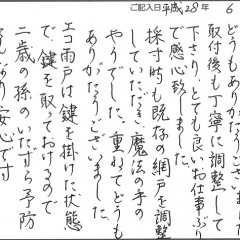 ご記入日 平成28年 6
どうもありがとうございま
取付後も丁寧に調整して
下さり、とても良いお仕事ぶり
で感心致しました。
採寸時も既存の網戸を調整
していただき、魔法の手の
やうでした。重ねてどうも
ありがとうございました。
エコ雨戸は鍵を掛けた状態
で、鍵を取っておけるので
二歳の孫のいたずら予防
になり安心です